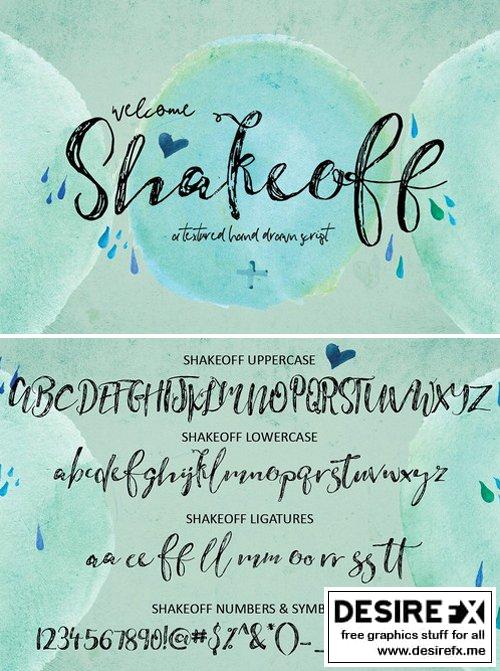 welcome
Shakeoff
a textured hand drawn script
+
SHAKEOFF UPPERCASE
ABCDEFGHIJKLMNOPQRSTUVWXYZ
SHAKEOFF LOWERCASE
abcdefghijklmnopqrstuvwxyz
SHAKEOFF LIGATURES
aa ee ff ll mm oo rr ss tt
SHAKEOFF NUMBERS & SYMB
1234567890!@#$%^&*()-_
DESIRE FX
free graphics stuff for all
www.desirefx.me